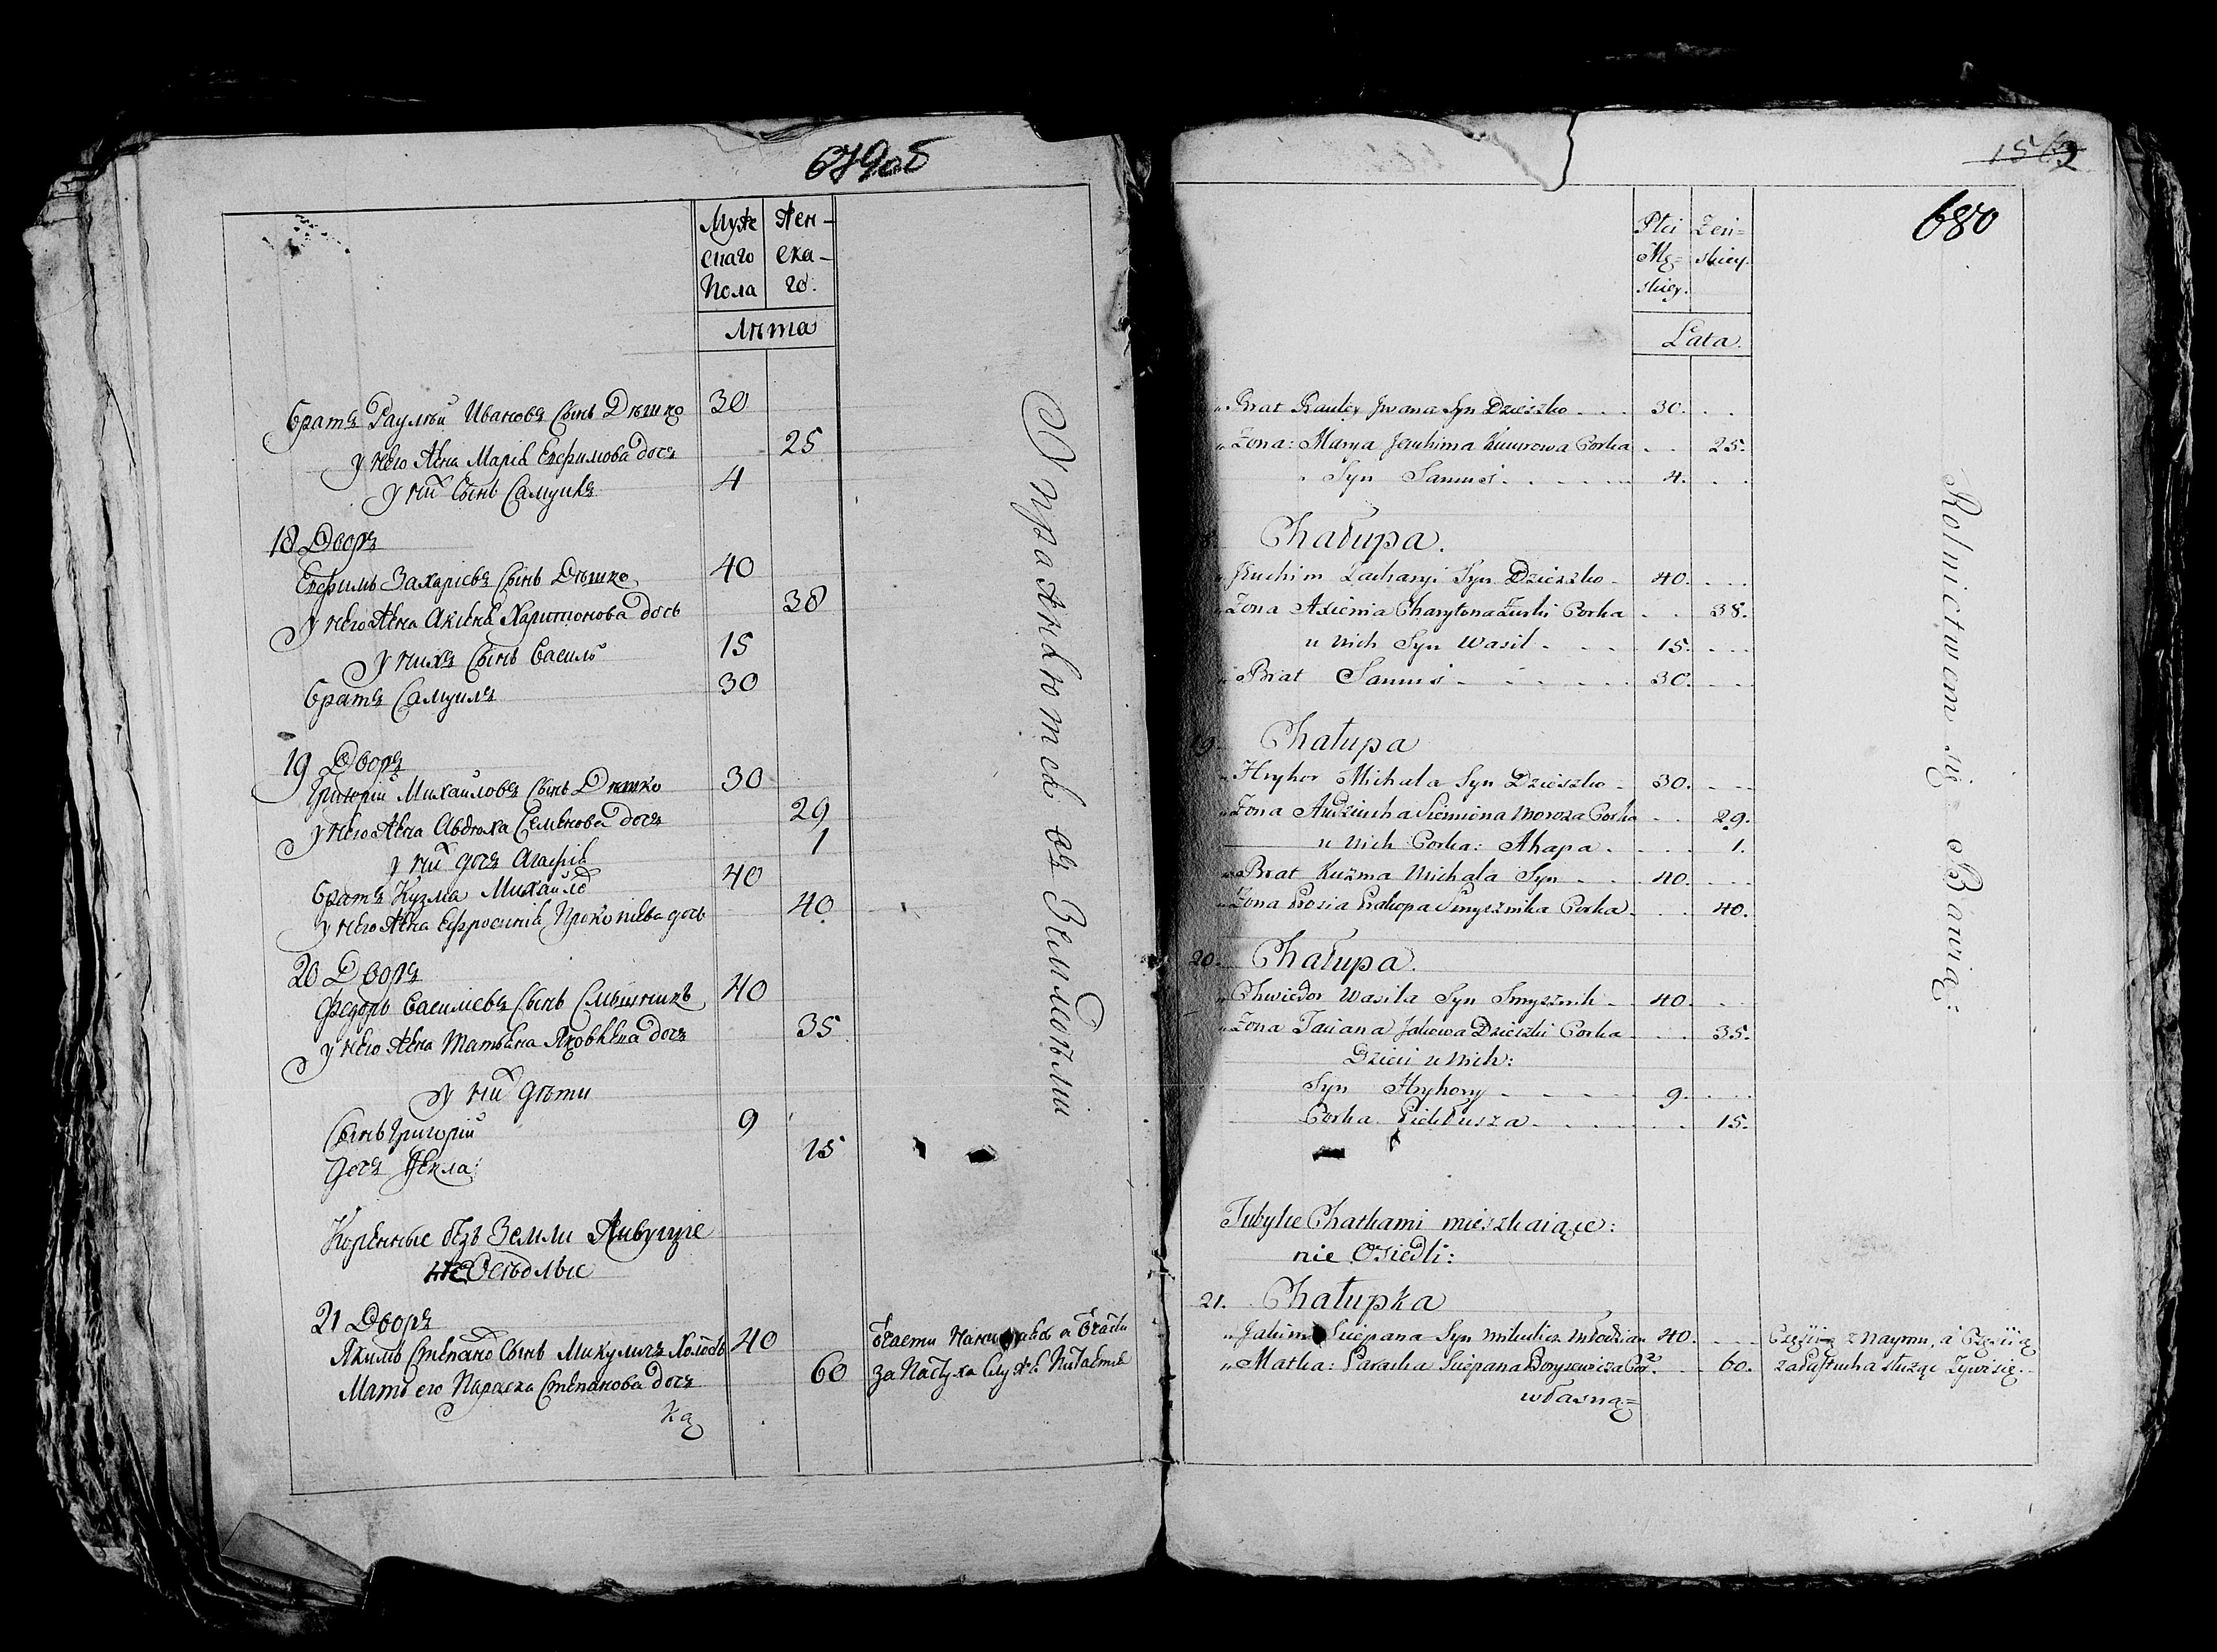 679об
Муже Жен-
скаго ска-
Пола го.
Лѣта
братъ Раулѣй Ивановъ Сынъ Дѣшко 30
у него жена Марія Ефимова дочъ 25
у ний Сынъ Самуилъ 4
18 Дворъ
Ефимъ Захаріевъ Сынъ Дѣшко 40
у него жена Аксенія Харитонова дочь 38
у нихъ Сынъ Василь 15
братъ Самуилъ 30
19 Дворъ
Григорій Михайловъ Сынъ Дѣшко 30
у него жена Авдюха Семенова дочъ 29
у ний дочъ Агафія 1
братъ Кузма Михайло 40
у него жена Ефросинія Прокопіева дочь 40
20 Дворъ
Федоръ Василіевъ Сынъ Смышникъ 40
у него жена Татьяна Яковлева дочъ 35
у ний дѣти
Сынъ Григорій 9
дочъ Фекла 15
Коренные безъ Земли Живущіе
не Осѣдлые
21 Дворъ
Якимъ Степано Сынъ Микуличъ Холостъ 40
Мать его Параска Степанова дочъ 60
за Пастуха служа Питается
Упражняются въ Земледѣліи
1562
680
Płci Żeń=
Mę= skiey.
skiey.
Lata.
Brat Rauley Jwana Syn Dzieszko 30.
Żona: Marya Jeuchima Córka 25.
Syn Samuś 4.
Chałupa.
Jeuchim Zacharyi Syn Dzieszko 40.
Żona Axienia Charytona Córka 38.
u Nich Syn Wasil 15.
Brat Samuś 30.
19. Chałupa
Hryhor Michała Syn Dzieszko 30.
Żona Audziucha Siemiona Moroza Córka 29.
u Nich Córka: Ahapa 1.
Brat Kuzma Michała Syn 40.
Żona Prosia Prakopa Smysznika Córka 40.
20. Chałupa.
Chwiedor Wasila Syn Smysznik 40.
Żona Taciana Jakowa Dzieszki Córka 35.
Dzieci u Nich:
Syn Hryhory 9.
Córka Fiekłusza 15.
Tubylce Chatkami mieszkaiące:
nie Osiedli:
21. Chałupka
Jakim Sciepana Syn Mikulicz młodzian 40. Częścią z Naymu, a Częścią
Matka: Paraska Sciepana Borysewicza Cor. 60. za Pastucha służąc Żywi się.
własną=
Rolnictwem się Bawią: